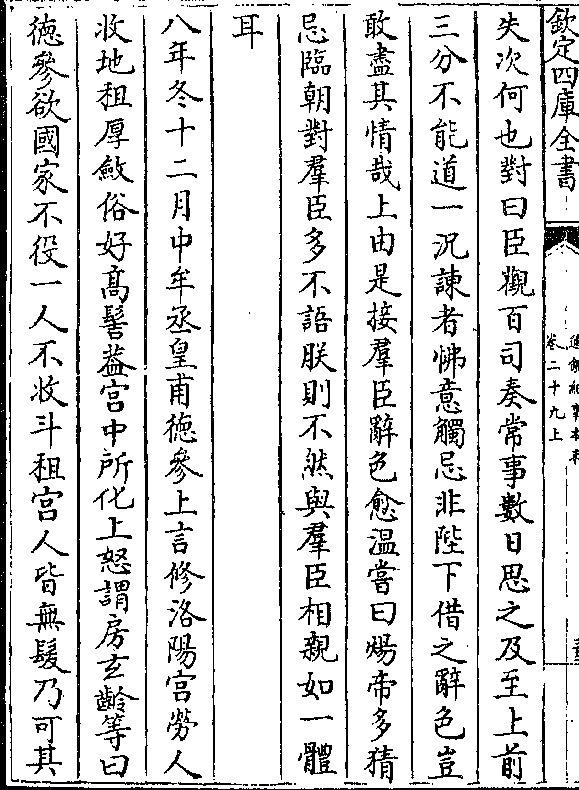 欽定四庫全書
通鑑紀事本末
卷二十九上
失次何也對曰臣觀百司奏常事數日思之及至上前
三分不能道一況諫者怫意觸忌非陛下借之辭色豈
敢盡其情哉上由是接羣臣辭色愈溫嘗曰煬帝多猜
忌臨朝對羣臣多不語朕則不然與羣臣相親如一體
耳
八年冬十二月中牟丞皇甫德參上言修洛陽宮勞人
收地租厚斂俗好高髻葢宮中所化上怒謂房玄齡等曰
德參欲國家不役一人不收斗租宮人皆無髮乃可其